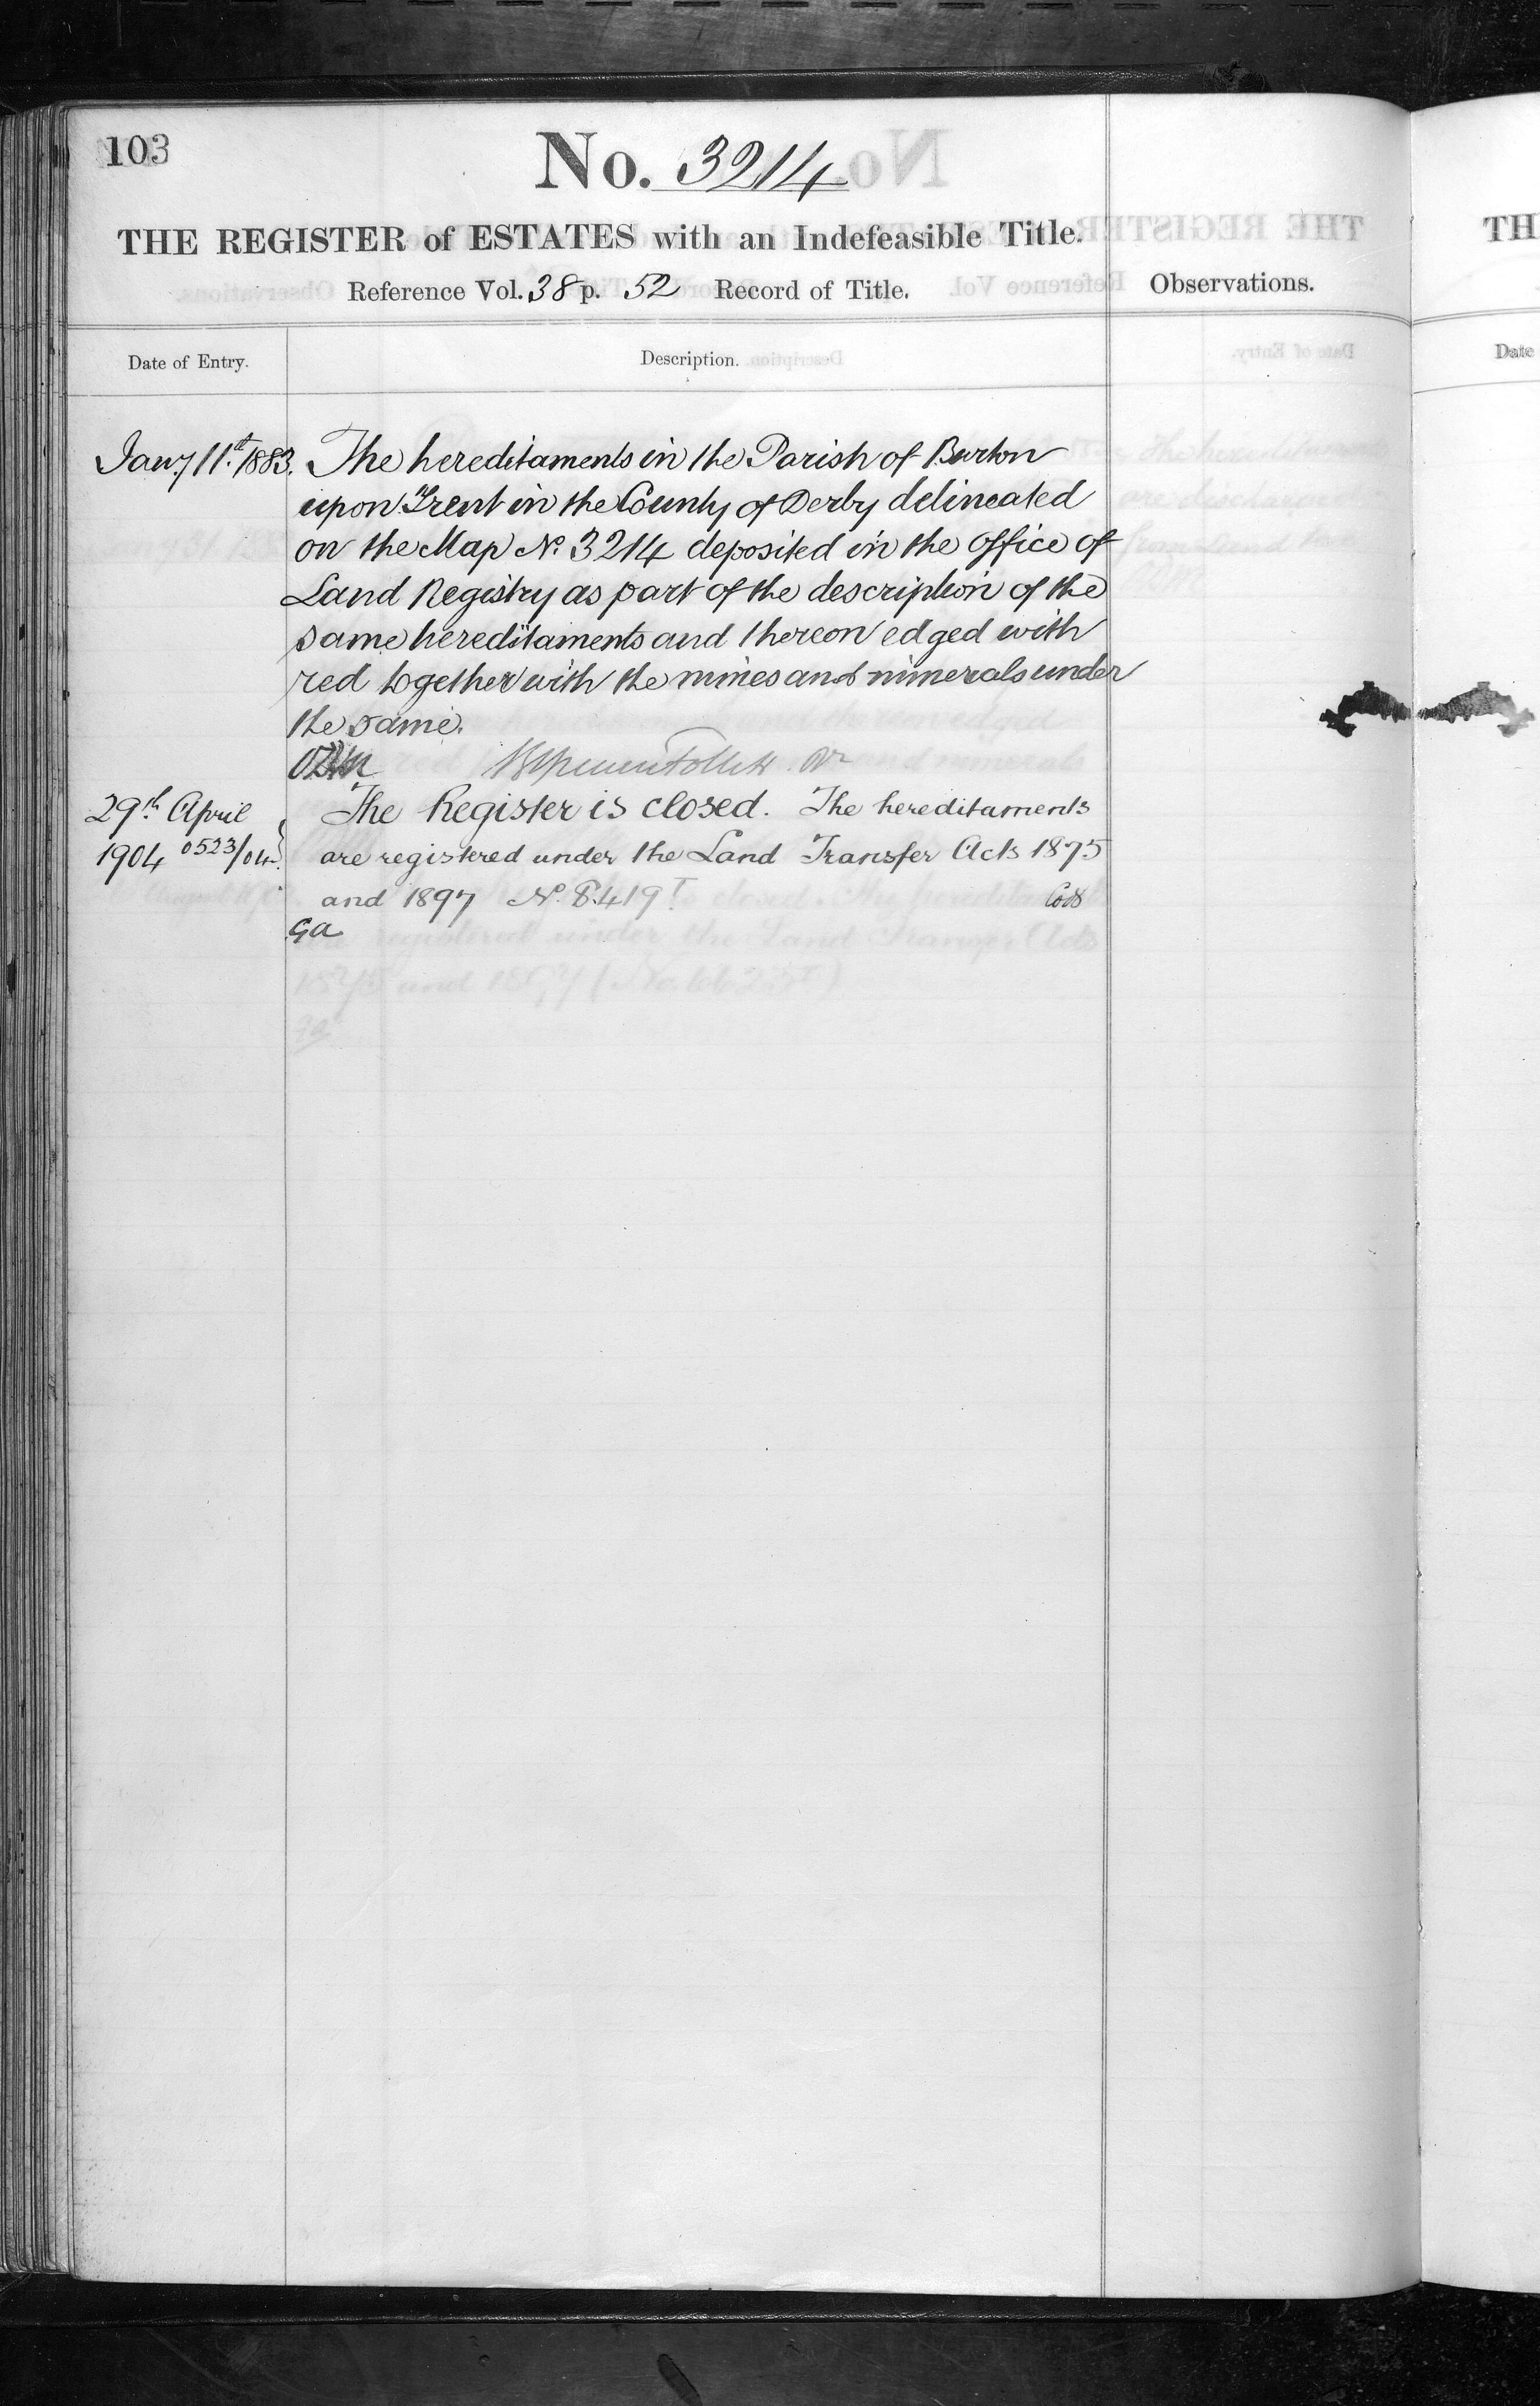 103
No. 3214
THE REGISTER of ESTATES with an Indefeasible Title.
Reference Vol. 38 p. 52 Record of Title.
Observations.
Date of Entry.
Description.
Jany 11th 1883. The hereditaments in the Parish of Burton
upon Trent in the County of Derby delineated
on the Map No. 3214 deposited in the office of
Land Registry as part of the description of the
same hereditaments and thereon edged with
red together with the mines and minerals under
the same.
29th April The Register is closed. The hereditaments
1904 0523/04 are registered under the Land Transfer Acts 1875
and 1897 No. 8419T
GA
TH
Date